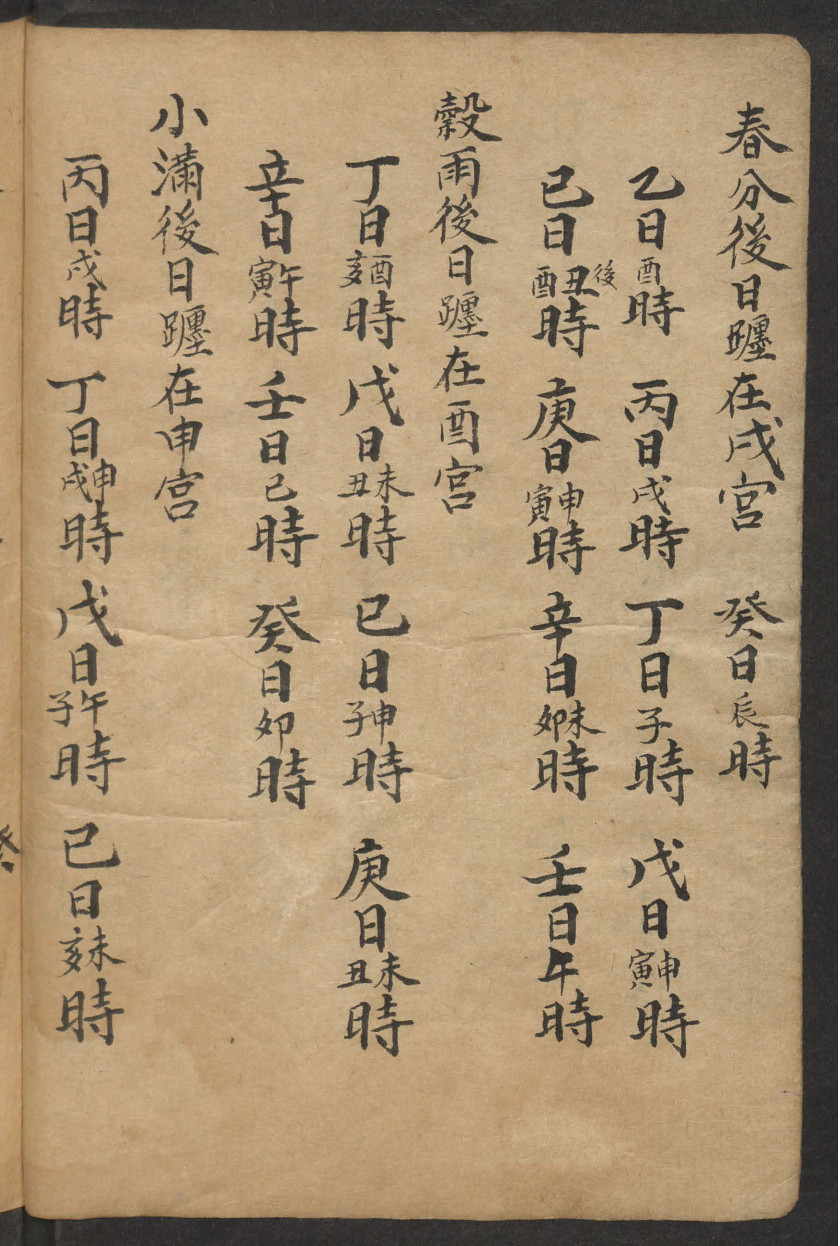 春分後日躔在戌宮 癸日辰時
乙日酉時 丙日戌時 丁日子時 戊日申寅時
己日丑後酉時 庚日申寅時 辛日未卯時 壬日午時
穀雨後日躔在酉宮
丁日酉亥時 戊日未丑時 己日申子時 庚日未丑時
辛日午寅時 壬日己時 癸日卯時
小滿後日躔在申宮
丙日戌時 丁日申戌時 戊日午子時 己日未亥時